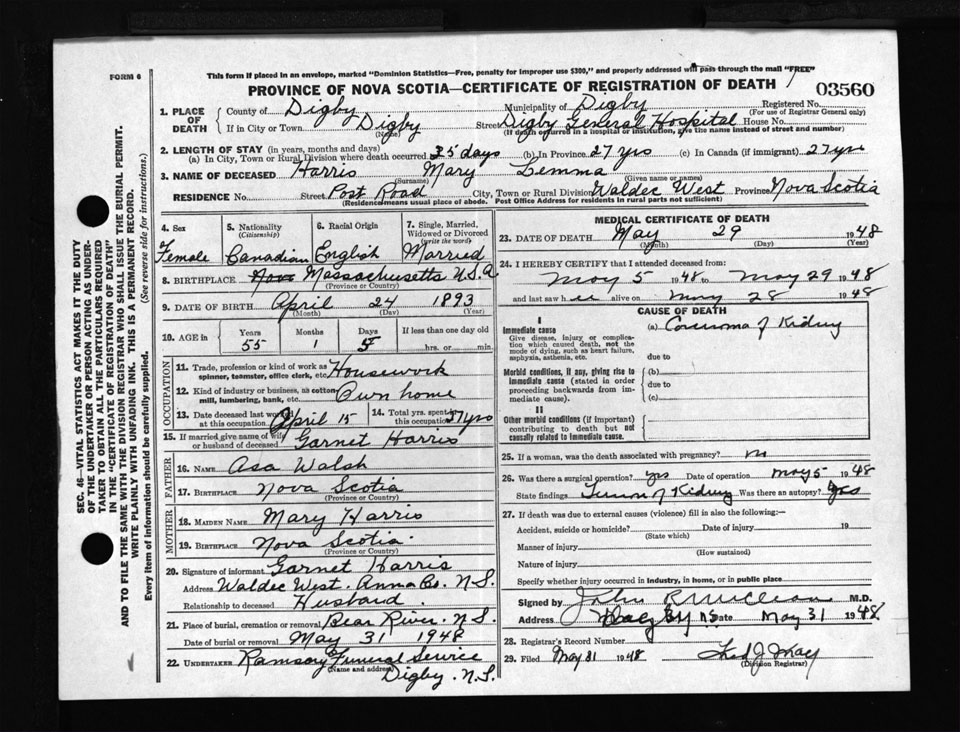 FORM 6
This form if placed in an envelope, marked "Dominion Statistics—Free, penalty for improper use $300," and properly addressed will pass through the mail "FREE"
PROVINCE OF NOVA SCOTIA—CERTIFICATE OF REGISTRATION OF DEATH
03560
1. PLACE OF DEATH
County of Digby Municipality of Digby Registered No.
(For use of Registrar General only)
If in City or Town Digby Street Digby General Hospital House No.
(Name) (If death occurred in a hospital or institution, give the name instead of street and number)
2. LENGTH OF STAY (in years, months and days)
(a) In City, Town or Rural Division where death occurred 25 days (b) In Province 27 yrs (c) In Canada (if immigrant) 27 yrs
3. NAME OF DECEASED Harris Mary Lemma
(Surname) (Given name or names)
RESIDENCE No. Street Post Road City, Town or Rural Division Waldec West Province Nova Scotia
(Residence means usual place of abode. Post Office Address for residents in rural parts not sufficient)
4. Sex 5. Nationality 6. Racial Origin 7. Single, Married, Widowed or Divorced
(Citizenship) (write the word)
Female Canadian English Married
8. BIRTHPLACE Nova Massachusetts U.S.A
(Province or Country)
9. DATE OF BIRTH April 24 1893
(Month) (Day) (Year)
10. AGE in Years Months Days If less than one day old
55 1 5 hrs. or min.
OCCUPATION
11. Trade, profession or kind of work as spinner, teamster, office clerk, etc. Housework
12. Kind of industry or business, as cotton mill, lumbering, bank, etc. Own home
13. Date deceased last worked at this occupation April 15 14. Total yrs. spent in this occupation 37 yrs
15. If married give name of wife or husband of deceased Garnet Harris
FATHER
16. NAME Asa Walsh
17. BIRTHPLACE Nova Scotia
(Province or Country)
MOTHER
18. MAIDEN NAME Mary Harris
19. BIRTHPLACE Nova Scotia
(Province or Country)
20. Signature of informant Garnet Harris
Address Waldec West. Anna Co. N.S.
Relationship to deceased Husband
21. Place of burial, cremation or removal Bear River, N.S.
Date of burial or removal May 31 1948
22. UNDERTAKER Ramsay Funeral Service
(Name and address) Digby. N.S.
MEDICAL CERTIFICATE OF DEATH
23. DATE OF DEATH May 29 1948
(Month) (Day) (Year)
24. I HEREBY CERTIFY that I attended deceased from:
May 5 1948 to May 29 1948
and last saw her alive on May 28 1948
CAUSE OF DEATH
I
Immediate cause (a) Carcinoma of Kidney
Give disease, injury or complication which caused death, not the mode of dying, such as heart failure, asphyxia, asthenia, etc.
due to
Morbid conditions, if any, giving rise to immediate cause (stated in order proceeding backwards from immediate cause).
(b)
due to
(c)
II
Other morbid conditions (if important) contributing to death but not causally related to immediate cause.
25. If a woman, was the death associated with pregnancy? no
26. Was there a surgical operation? yes Date of operation May 5 1948
State findings Tumor of Kidney Was there an autopsy? yes
27. If death was due to external causes (violence) fill in also the following:—
Accident, suicide or homicide? Date of injury 19
(State which)
Manner of injury
(How sustained)
Nature of injury
Specify whether injury occurred in industry, in home, or in public place
Signed by John R McCleave M.D.
Address Digby NS Date May 31 1948
28. Registrar's Record Number
29. Filed May 31 1948
(Division Registrar)
SEC. 46—VITAL STATISTICS ACT MAKES IT THE DUTY
OF THE UNDERTAKER OR PERSON ACTING AS UNDERTAKER TO OBTAIN ALL THE PARTICULARS REQUIRED
IN THE "CERTIFICATE OF REGISTRATION OF DEATH"
AND TO FILE THE SAME WITH THE DIVISION REGISTRAR WHO SHALL ISSUE THE BURIAL PERMIT.
WRITE PLAINLY WITH UNFADING INK. THIS IS A PERMANENT RECORD.
Every item of information should be carefully supplied. (See reverse side for instructions.)